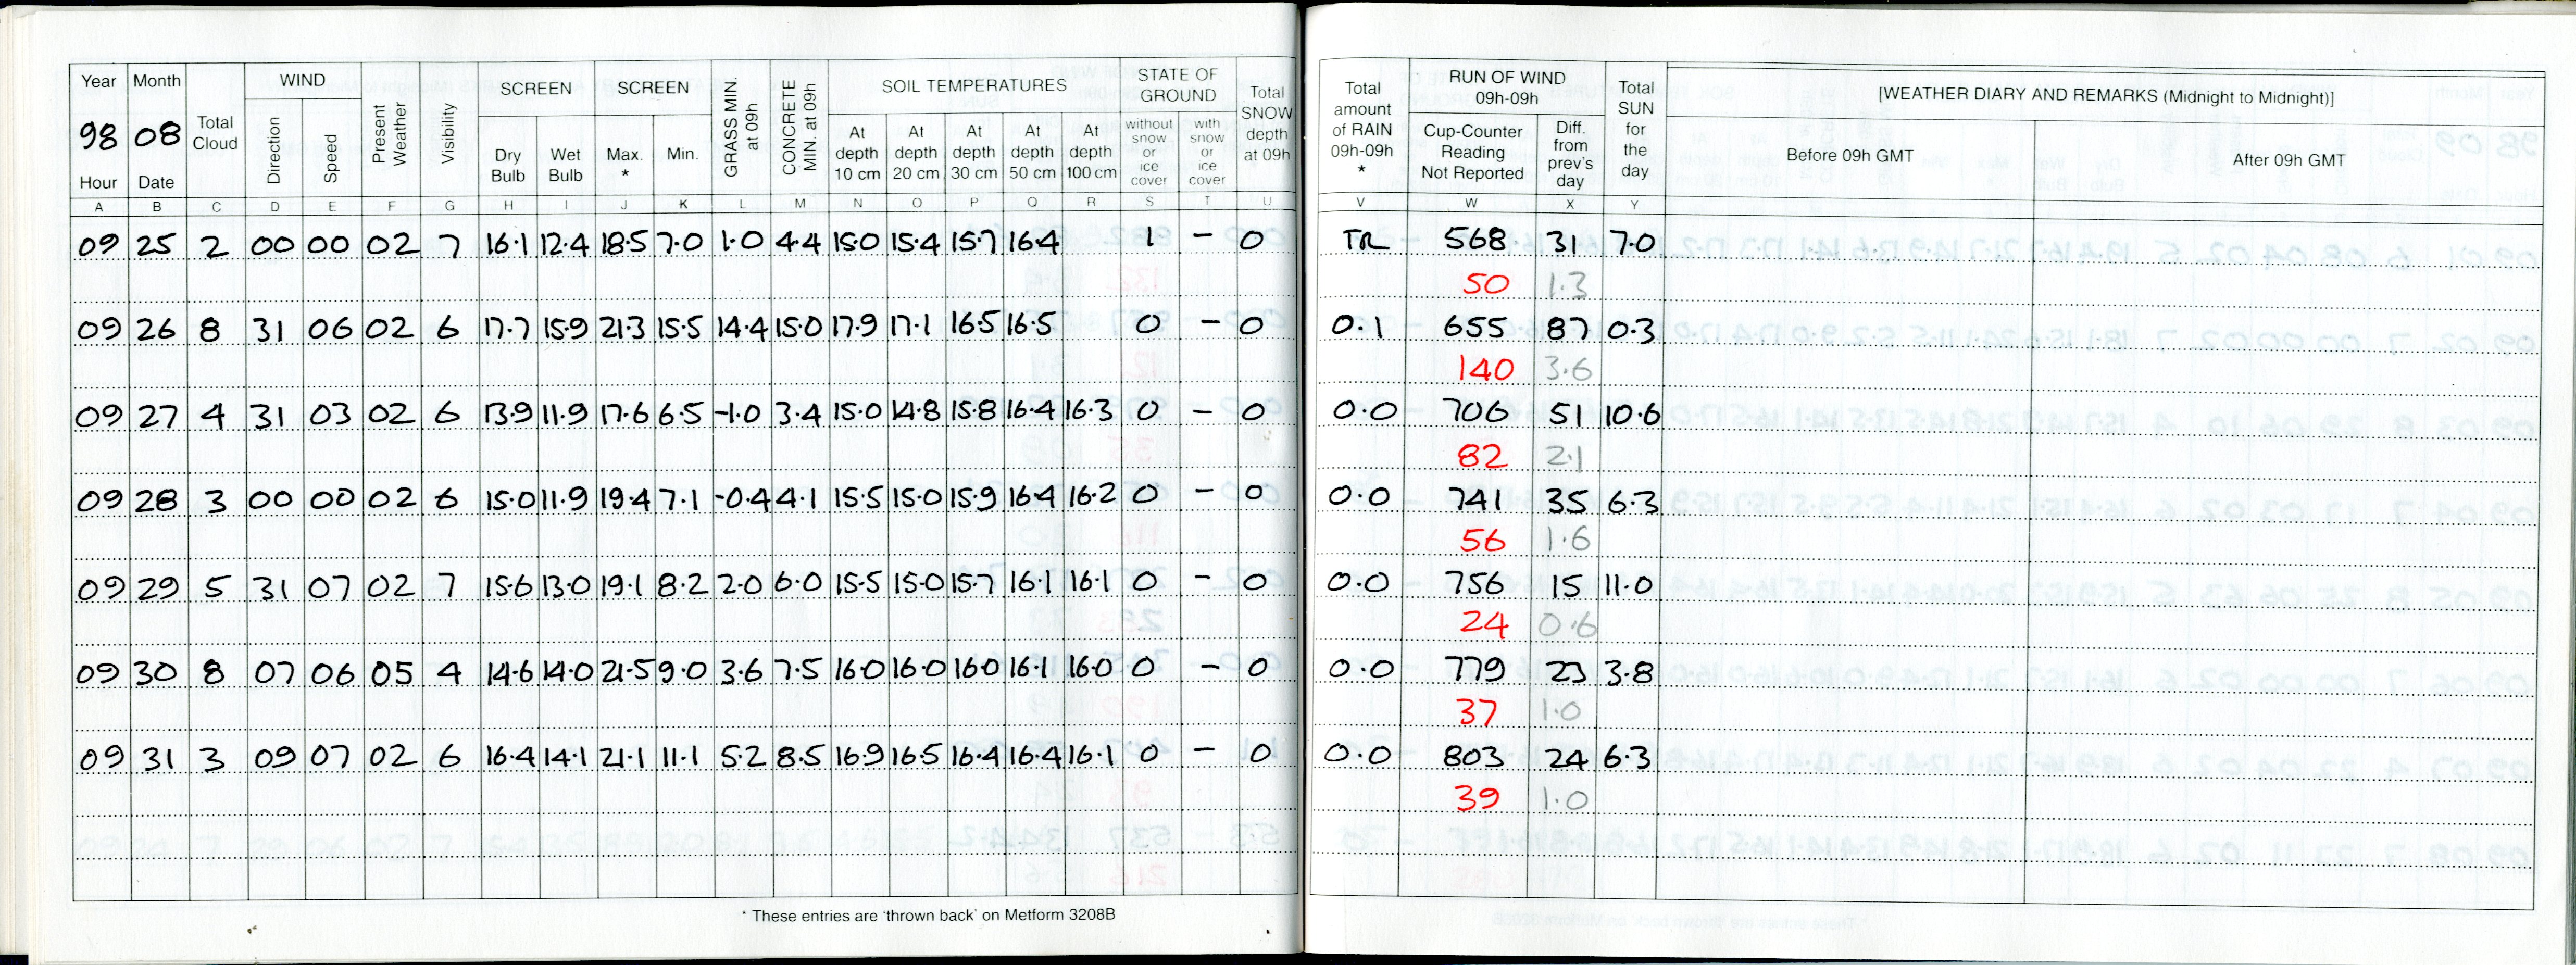 Year Month Total Cloud WIND Present Weather Visibility SCREEN SCREEN GRASS MIN. at 09h CONCRETE MIN. at 09h SOIL TEMPERATURES STATE OF GROUND Total SNOW depth at 09h Total amount of RAIN 09h-09h * RUN OF WIND 09h-09h Total SUN for the day [WEATHER DIARY AND REMARKS (Midnight to Midnight)]
98 08 Direction Speed Dry Bulb Wet Bulb Max. * Min. At depth 10 cm At depth 20 cm At depth 30 cm At depth 50 cm At depth 100 cm without snow or ice cover with snow or ice cover Cup-Counter Reading Not Reported Diff. from prev's day Before 09h GMT After 09h GMT
Hour Date
A B C D E F G H I J K L M N O P Q R S T U V W X Y
09 25 2 00 00 02 7 16.1 12.4 18.5 7.0 1.0 4.4 15.0 15.4 15.7 16.4 1 - 0 TR 568 31 7.0
50 1.3
09 26 8 31 06 02 6 17.7 15.9 21.3 15.5 14.4 15.0 17.9 17.1 16.5 16.5 0 - 0 0.1 655 87 0.3
140 3.6
09 27 4 31 03 02 6 13.9 11.9 17.6 6.5 -1.0 3.4 15.0 14.8 15.8 16.4 16.3 0 - 0 0.0 706 51 10.6
82 2.1
09 28 3 00 00 02 6 15.0 11.9 19.4 7.1 -0.4 4.1 15.5 15.0 15.9 16.4 16.2 0 - 0 0.0 741 35 6.3
56 1.6
09 29 5 31 07 02 7 15.6 13.0 19.1 8.2 2.0 6.0 15.5 15.0 15.7 16.1 16.1 0 - 0 0.0 756 15 11.0
24 0.6
09 30 8 07 06 05 4 14.6 14.0 21.5 9.0 3.6 7.5 16.0 16.0 16.0 16.1 16.0 0 - 0 0.0 779 23 3.8
37 1.0
09 31 3 09 07 02 6 16.4 14.1 21.1 11.1 5.2 8.5 16.9 16.5 16.4 16.4 16.1 0 - 0 0.0 803 24 6.3
39 1.0
* These entries are 'thrown back' on Metform 3208B